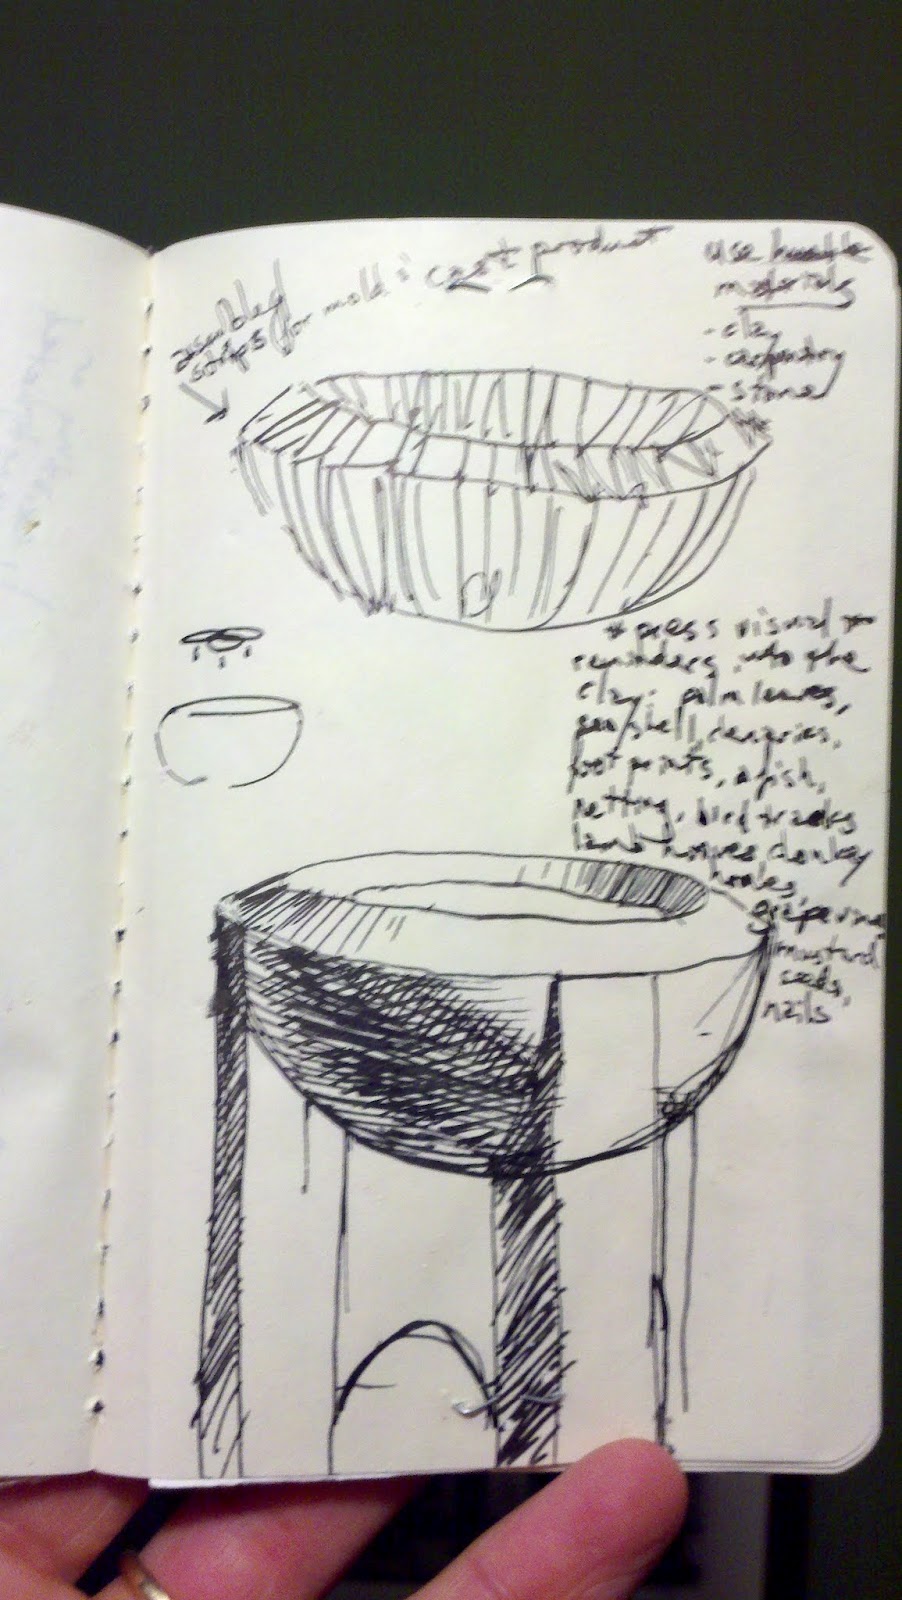 assembled
strips for mold & cast product
use humble
materials
- clay
- carpentry
- stone
* press visual
reminders into the
clay: palm leaves,
sea shell,
foot prints, a fish,
netting, bird tracks
lamb donkey
grapevine,
mustard
seeds,
nails